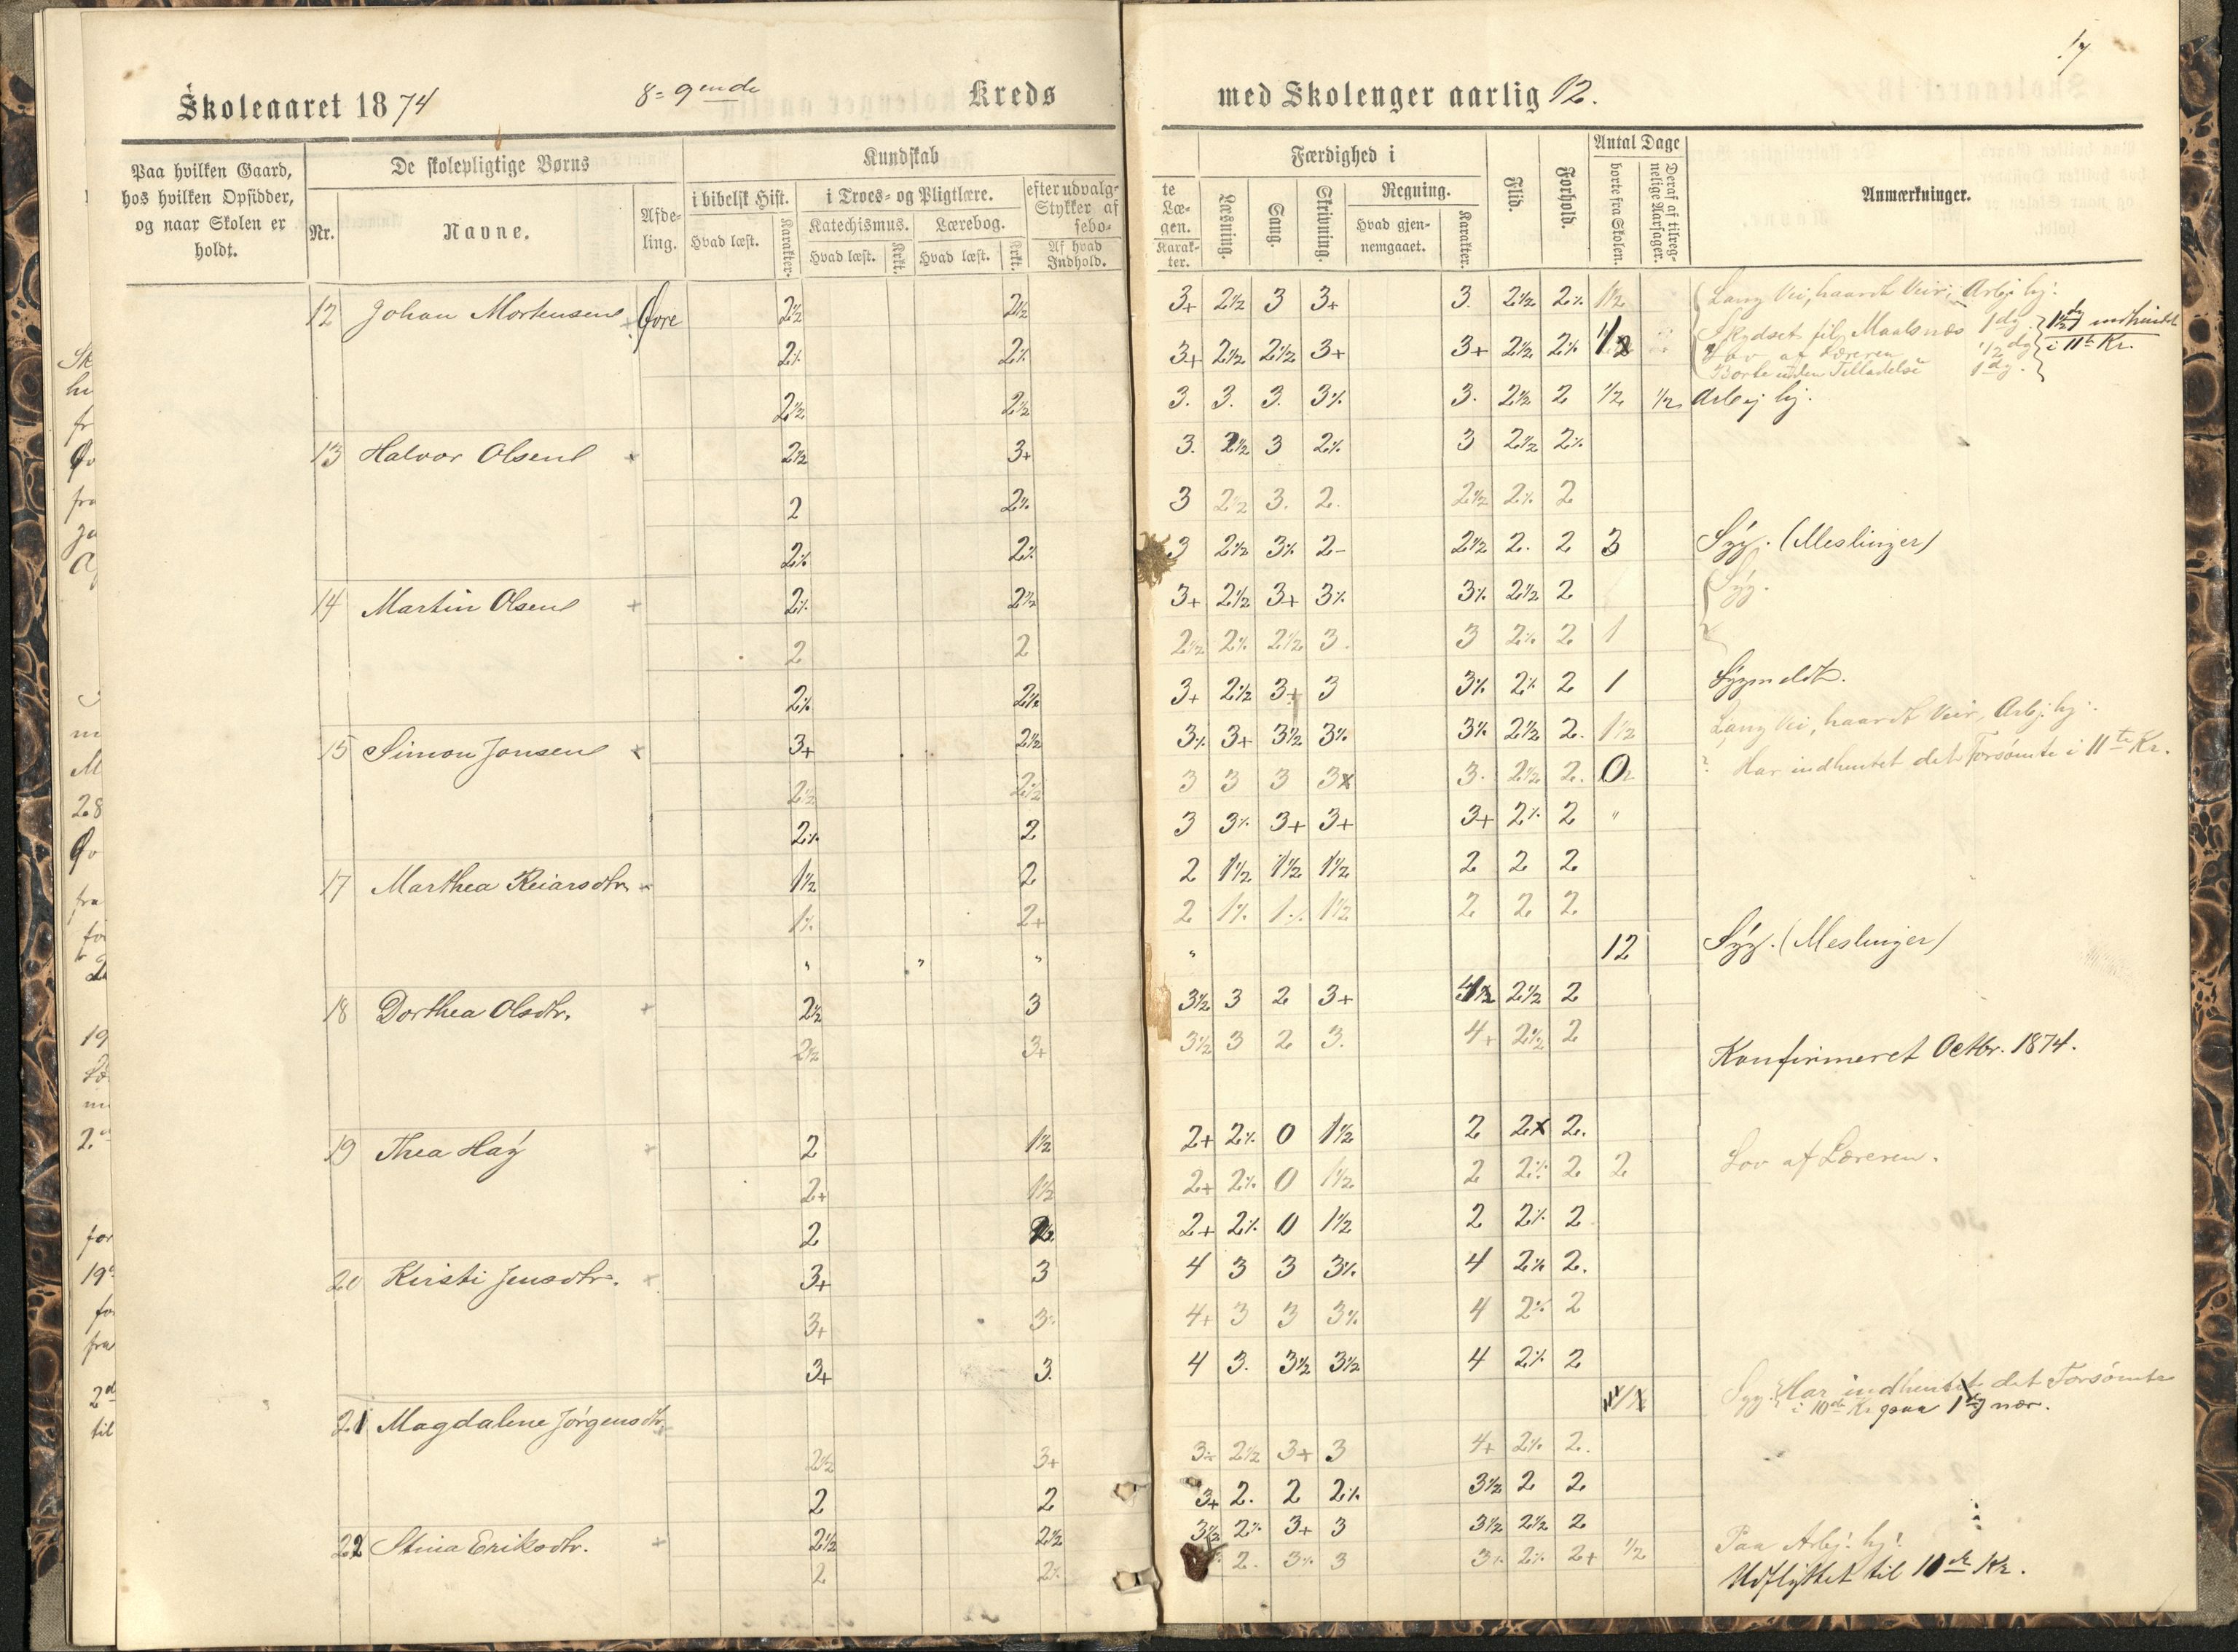 17
Skoleaaret 1874 8=9ende Kreds med Skolenger aarlig 12.
Paa hvilken Gaard, hos hvilken Opsidder, og naar Skolen er holdt.
De skolepligtige Børns
Nr. Navne. Afdeling.
Kundskab
i bibelsk Hist. i Troes- og Pligtlære. efter udvalg-
Stykker af
sebo-
Hvad læst. Karakter. Katechismus. Lærebog.
Hvad læst. Krkt. Hvad læst. Krkt. Af hvad Indhold.
te Læ-
gen.
Karak-
ter.
Færdighed i
Læsning. Sang. Skrivning. Regning.
Hvad gjen-
nemgaaet. Karakter.
Flid. Forhold.
Antal Dage
borte fra Skolen. Deraf af tilreg-
nelige Aarsager.
Anmærkninger.
12 Johan Mortensen + Øvre 2½ 2½ 3+ 2½ 3 3+ 3. 2½ 2% 1½ Lang Vei, haardt Veir, Arbj. hj.
2% 2% 3+ 2½ 2½ 3+ 3+ 2½ 2% Skydset til Maalsnæs 1 dg.
Lov af Læreren ½ dg
Borte uden Tilladelse 1 dg.
i 11te Kr.
2½ 2½ 3. 3. 3. 3% 3. 2½ 2 ½ ½ Arbej hj.
13 Halvor Olsen + 2½ 3+ 3. 2½ 3 2% 3 2½ 2%
2 2% 3 2½ 3. 2. 2½ 2% 2
2% 2% 3 2½ 3% 2- 2½ 2. 2 3 Syg. (Meslinger)
14 Martin Olsen + 2% 2½ 3+ 2½ 3+ 3% 3% 2½ 2 Syg.
2 2 2½ 2% 2½ 3. 3 2% 2 1
2% 2½ 3+ 2½ 3+ 3 3% 2% 2 1 Sygmeldt.
15 Simon Jonsen + 3+ 2½ 3% 3+ 3½ 3% 3% 2½ 2. 1½ Lang Vei, haardt Veir, Arbj. hj.
2½ 2½ 3 3 3 3x 3. 2½ 2. 0 Har indhentet det Forsømte i 11te Kr.
2% 2 3 3% 3+ 3+ 3+ 2% 2 "
17 Marthea Reiarsdtr. + 1½ 2 2 1½ 1½ 1½ 2 2 2
1% 2+ 2 1% 1% 1½ 2 2 2
" " " " 12 Syg. (Meslinger)
18 Dorthea Olsdtr. + 2½ 3 3½ 3 2 3+ 2½ 2
2½ 3+ 3½ 3 2 3. 4+ 2½ 2
Konfirmeret Octbr. 1874.
19 Thea Haý + 2 1½ 2+ 2% 0 1½ 2 2x 2.
2+ 1½ 2+ 2% 0 1½ 2 2% 2 2 Lov af Læreren.
2 2+ 2% 0 1½ 2 2% 2
20 Kirsti Jensdtr. + 3+ 3 4 3 3 3% 4 2% 2.
3+ 3% 4+ 3 3 3% 4 2% 2
3+ 3. 4 3. 3½ 3½ 4 2% 2
21 Magdalene Jørgensdtr. + Syg. Har indhentet det Forsømte
i 10de Kr. paa 1 dg nær.
2½ 3+ 3% 2½ 3+ 3 4+ 2% 2.
2 2 3+ 2. 2 2% 3½ 2 2
22 Stina Eriksdtr. + 2½ 2½ 3½ 2% 3+ 3 3½ 2½ 2
2 2% 2. 3% 3 3% 2% 2+ ½ Paa Arbj. hj.
Udflyttet til 10de Kr.